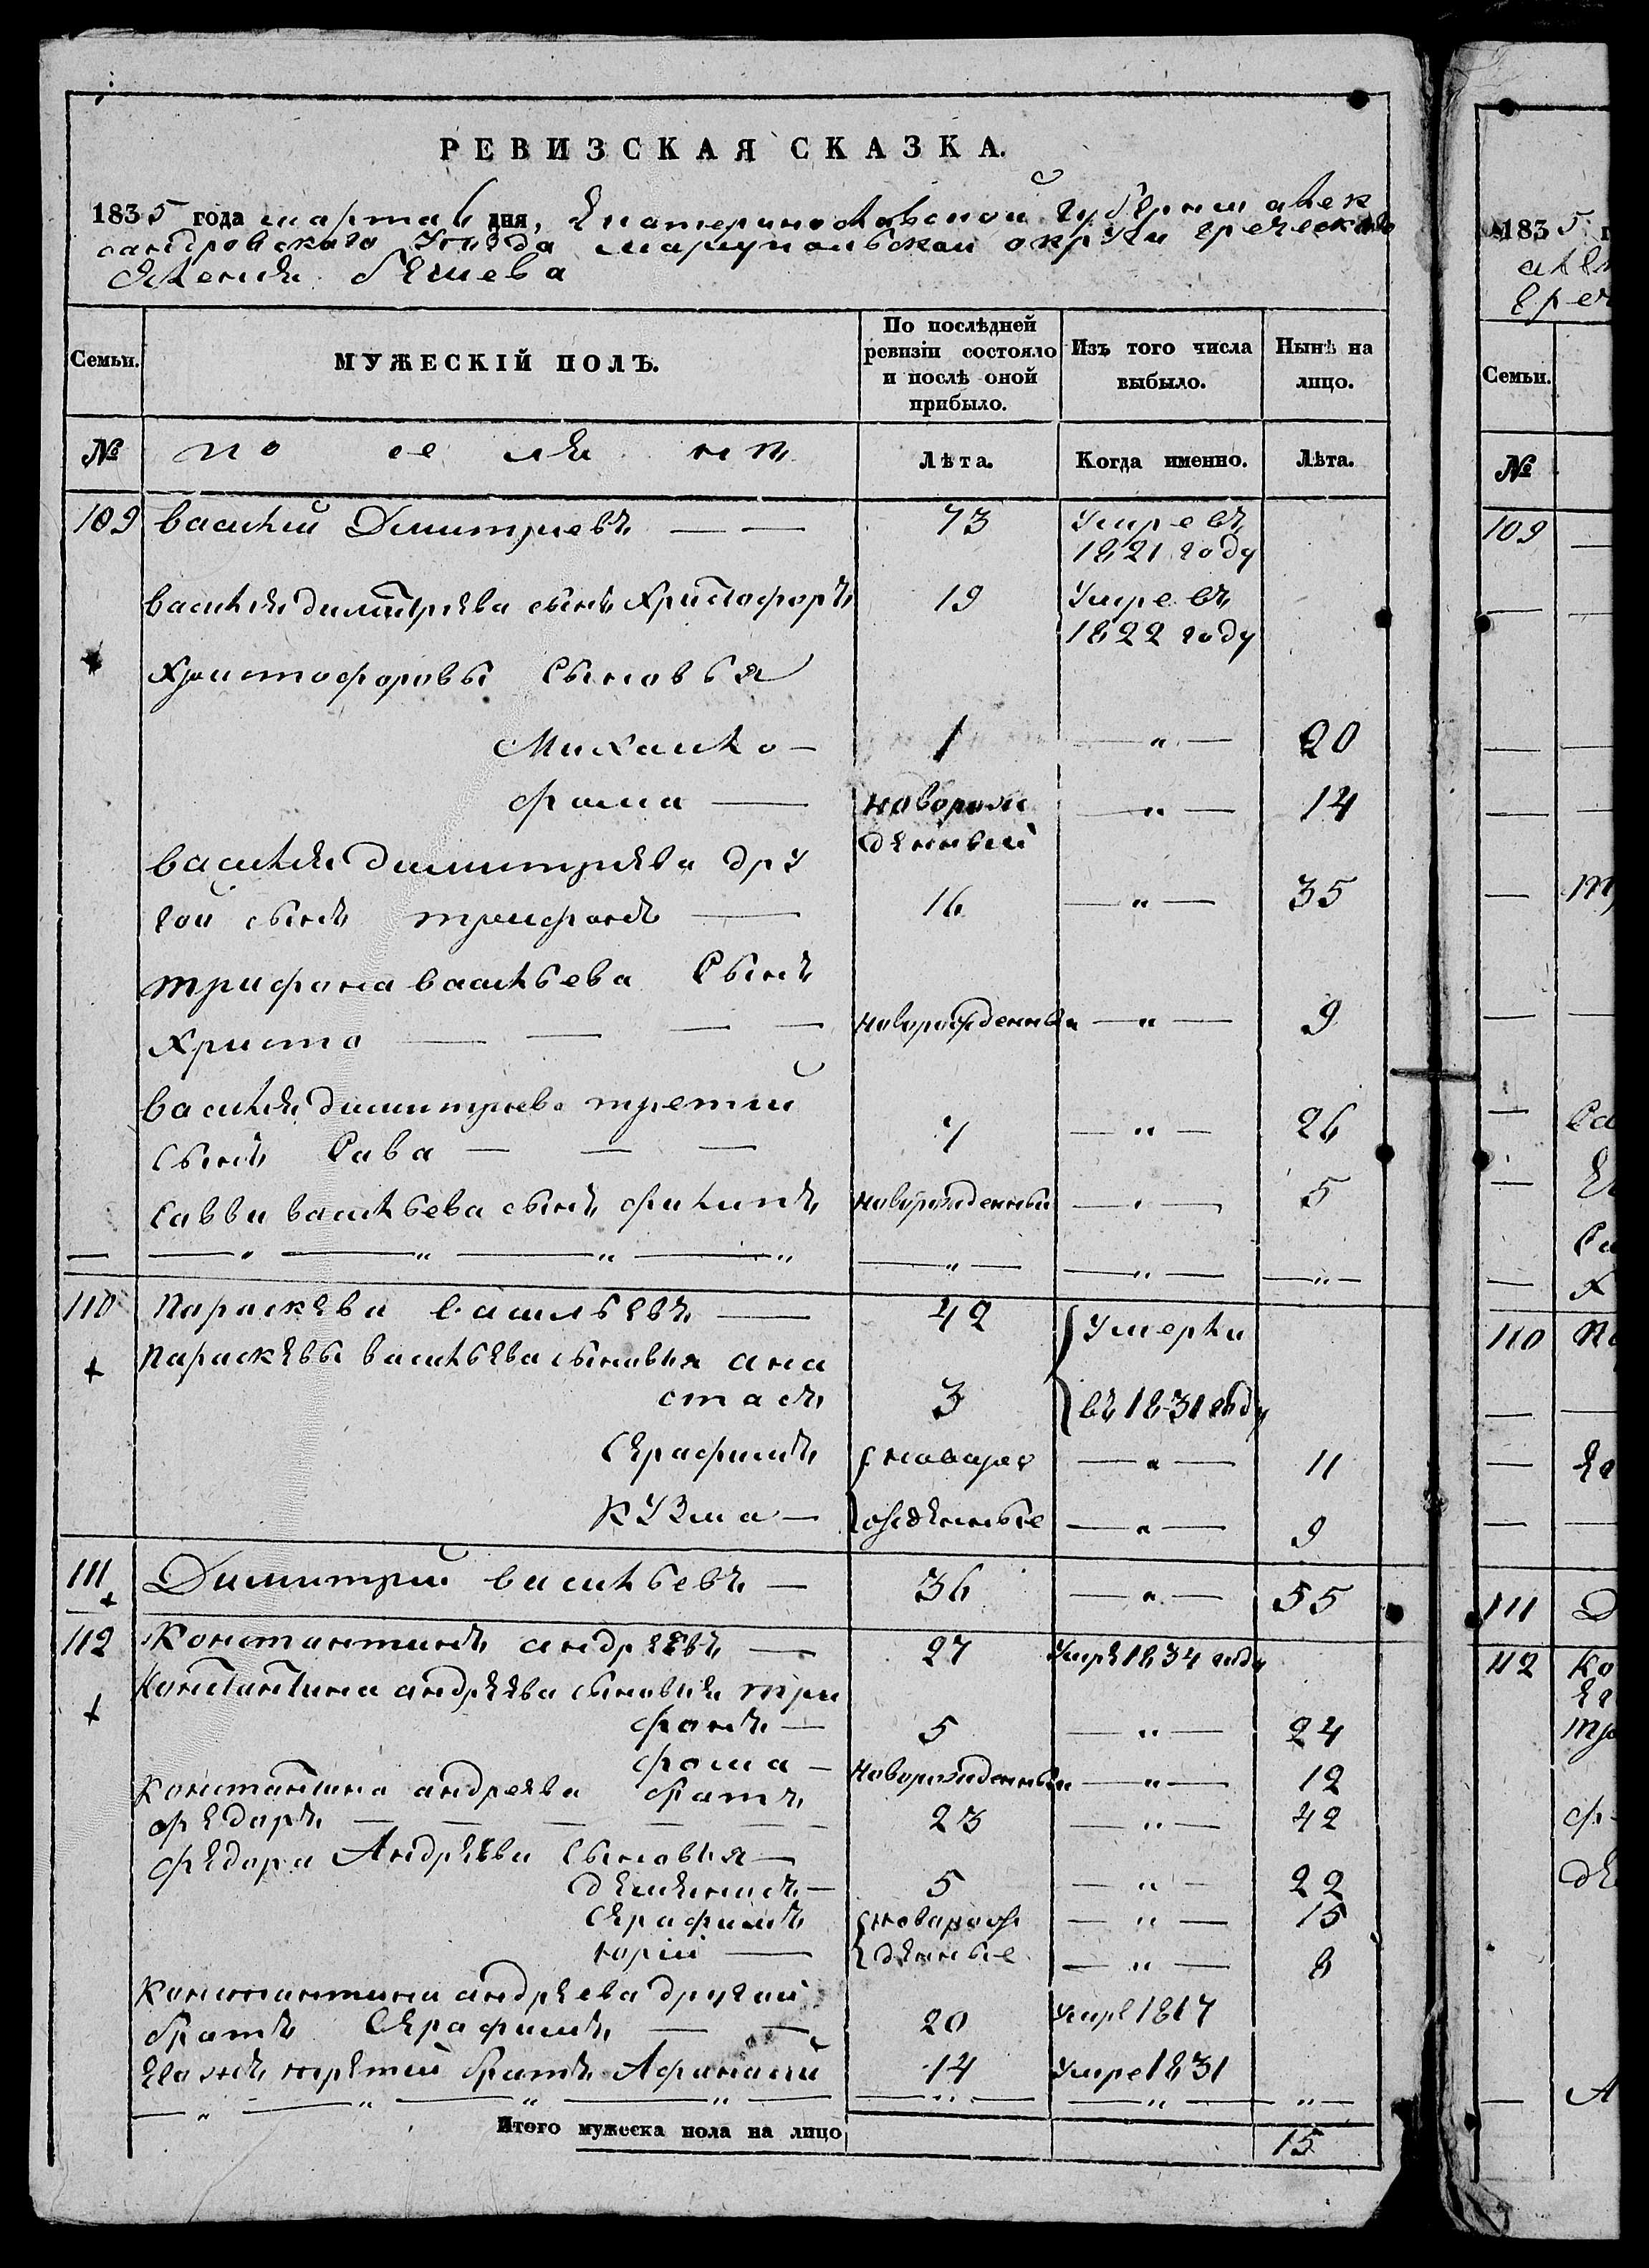 РЕВИЗСКАЯ СКАЗКА.
1835 года марта 6 дня, Екатеринославской Губернии алек
сандровского уезда мариупольской округи греческаго
селения бешева
Семьи. МУЖЕСКІЙ ПОЛЪ. По послѣдней ревизіи состояло и послѣ оной прибыло. Изъ того числа выбыло. Нынѣ на лицо.
№ по се ля нъ Лѣта. Когда именно. Лѣта.
109 василий Дмитриевъ — — 73 Умре въ
1821 году
василия димитриева сынъ Христофоръ 19 Умре въ
1822 году
Христофоровы Сыновья
Михайло — 1 — " — 20
фома — новорож — " — 14
денный
василия димитриева дру
гой сынъ трифонъ — 16 — " — 35
трифона васильева Сынъ
Христо — — — — новорожденный — " — 9
василия димитриева третий
Сынъ Сава — — — 7 — " — 26
Савви васильева сынъ филипъ новорожденный — " — 5
— " — " — " — " — " — — " — — " —
110 Параскева васильевъ — 42 Умерли
Параскевы васильева сыновья ана
стасъ 3 въ 1831 году
Серафимъ новоро — " — 11
Кузма — жденные — " — 9
111 Димитрий васильевъ — 36 — " — 55
112 Константинъ андреевъ — 27 Умре 1834 году
Константина андреева сыновья три
фонъ — 5 — " — 24
фома — новорожденный — " — 12
Константина андреева братъ
федоръ — — — — — — 23 — " — 42
федора Андреева Сыновья —
демянисъ — 5 — " — 22
Серафимъ новорож — " — 15
юрій — денные — " — 8
Константина андреева другий
братъ Серафимъ — — 20 Умре 1817
его же третий братъ Афанасий 14 Умре 1831
— " — " — " — " — — " — — " — " —
Итого мужеска пола на лицо 15
1835
Семьи.
№
109
110
111
112